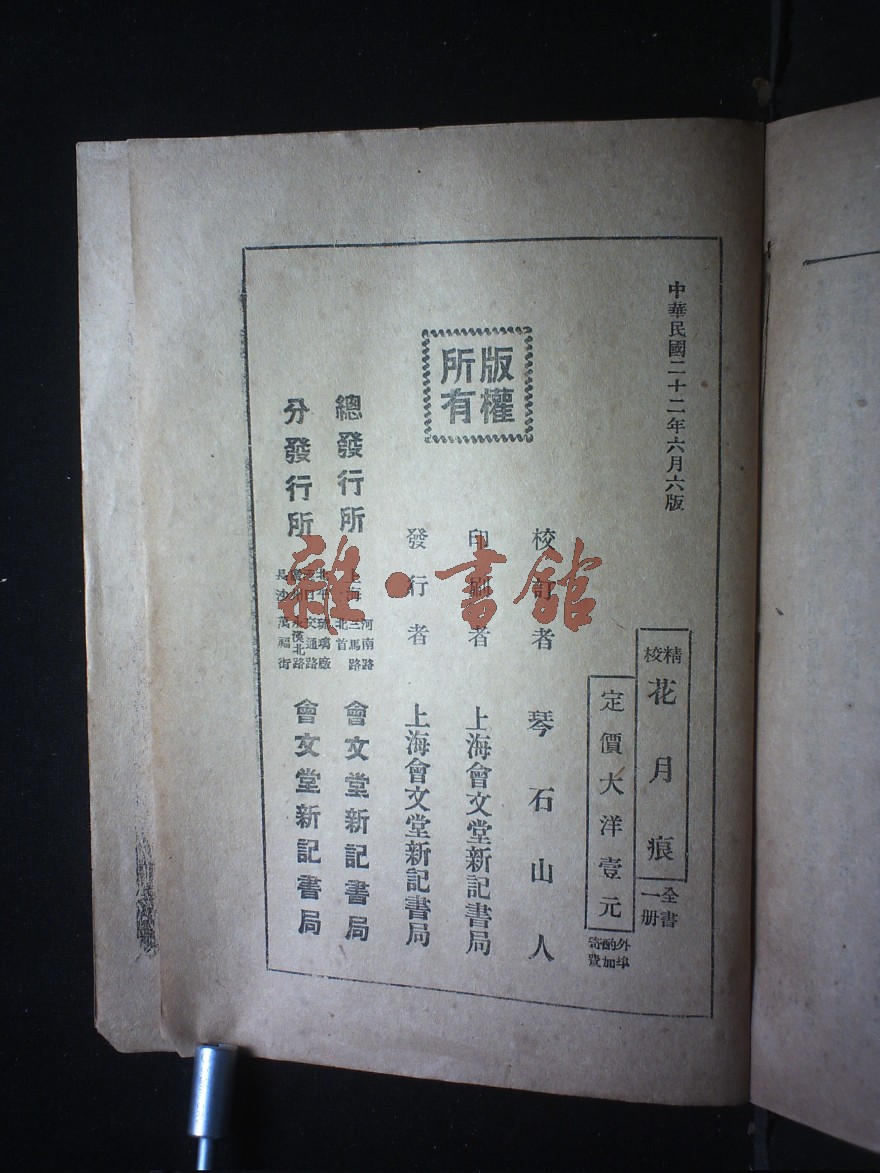 中華民國二十二年六月六版
精校
花月痕
全書一册
定價大洋壹元
外埠酌加寄費
校訂者 琴石山人
印刷者 上海會文堂新記書局
版權所有
發行者 上海會文堂新記書局
總發行所 上海 河南路三馬路北首 會文堂新記書局
分發行所
北平琉璃廠
交通路
永漢北路
長沙萬福街
會文堂新記書局
雜·書館